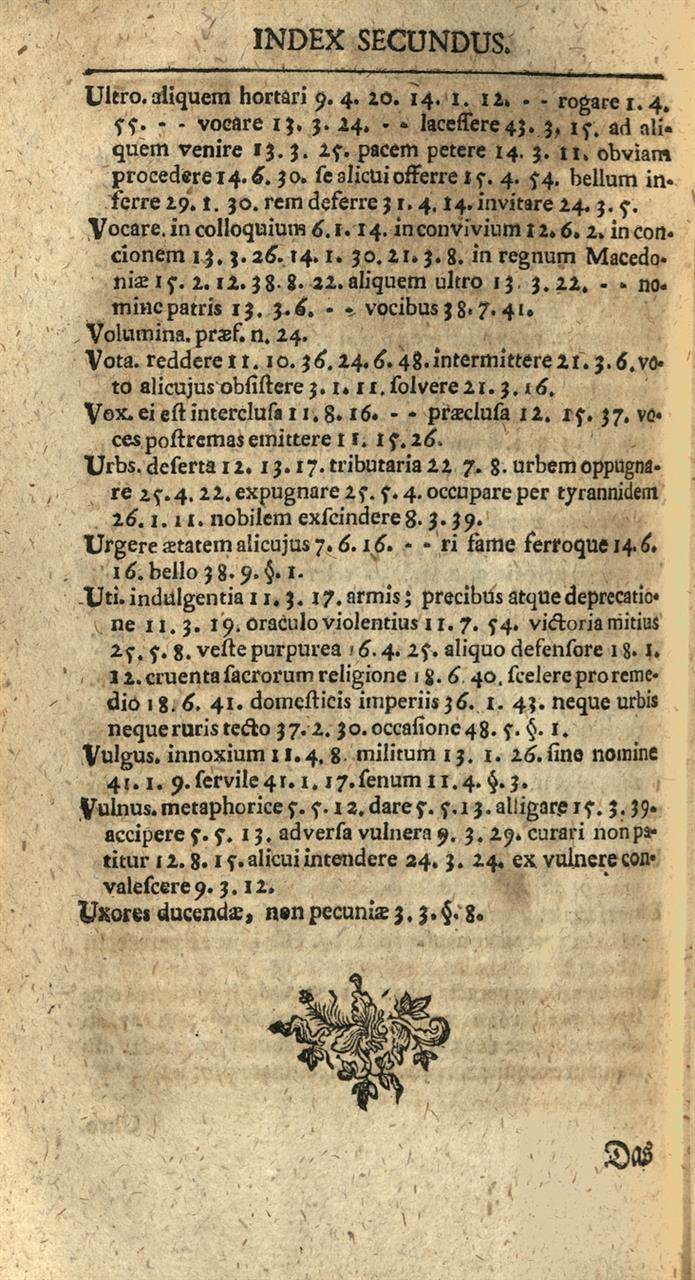 INDEX SECUNDUS.
Ultro. aliquem hortari 9. 4. 20. 14. 1. 12. - - rogare 1. 4.
55. - - vocare 13. 3. 24. - - laceſſere 43. 3. 15. ad ali-
quem venire 13. 3. 25. pacem petere 14. 3. 11. obviam
procedere 14. 6. 30. ſe alicui offerre 15. 4. 54. bellum in-
ferre 29. 1. 30. rem deferre 31. 4. 14. invitare 24. 3. 5.
Vocare. in colloquium 6. 1. 14. in convivium 12. 6. 2. in con-
cionem 13. 3. 26. 14. 1. 30. 21. 3. 8. in regnum Macedo-
niæ 15. 2. 12. 38. 8. 22. aliquem ultro 13. 3. 22. - - no-
mine patris 13. 3. 6. - - vocibus 38. 7. 41.
Volumina. præf. n. 24.
Vota. reddere 11. 10. 36. 24. 6. 48. intermittere 21. 3. 6. vo-
to alicujus obſiſtere 3. 1. 11. ſolvere 21. 3. 16.
Vox. ei eſt intercluſa 11. 8. 16. - - præcluſa 12. 15. 37. vo-
ces poſtremas emittere 11. 15. 26.
Urbs. deſerta 12. 13. 17. tributaria 22 7. 8. urbem oppugna-
re 25. 4. 22. expugnare 25. 5. 4. occupare per tyrannidem
26. 1. 11. nobilem exſcindere 8. 3. 39.
Urgere ætatem alicujus 7. 6. 16. - - ri fame ferroque 14. 6.
16. bello 38. 9. §. 1.
Uti. indulgentia 11. 3. 17. armis; precibus atque deprecatio-
ne 11. 3. 19. oraculo violentius 11. 7. 54. victoria mitius
25. 5. 8. veſte purpurea 16. 4. 25. aliquo defenſore 18. 1.
12. cruenta ſacrorum religione 18. 6. 40. ſcelere pro reme-
dio 18. 6. 41. domeſticis imperiis 36. 1. 43. neque urbis
neque ruris tecto 37. 2. 30. occaſione 48. 5. §. 1.
Vulgus. innoxium 11. 4. 8. militum 13. 1. 26. ſine nomine
41. 1. 9. ſervile 41. 1. 17. ſenum 11. 4. §. 3.
Vulnus. metaphorice 5. 5. 12. dare 5. 5. 13. alligare 15. 3. 39.
accipere 5. 5. 13. adverſa vulnera 9. 3. 29. curari non pa-
titur 12. 8. 15. alicui intendere 24. 3. 24. ex vulnere con-
valeſcere 9. 3. 12.
Uxores ducendæ, non pecuniæ 3. 3. §. 8.
Das